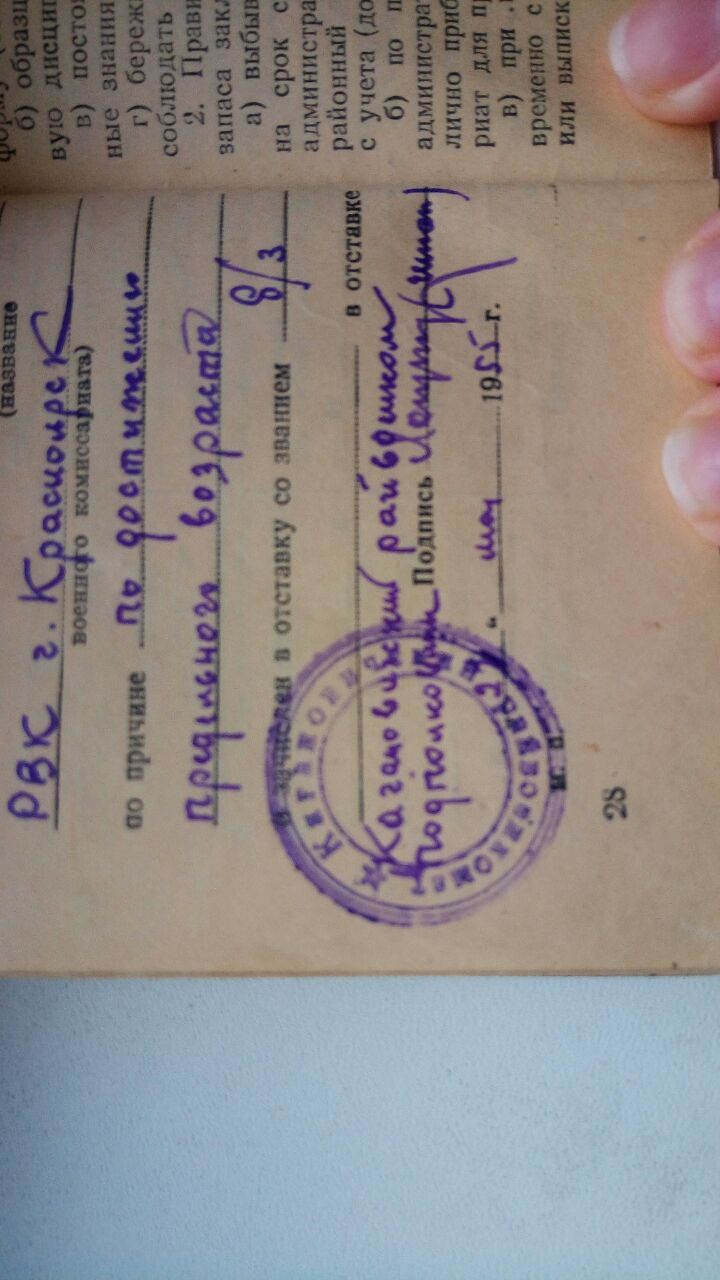 форму
б) образц
вую дисцип
в) постоя
ные знания
г) бережн
соблюдать
2. Прави
запаса закл
а) выбыв
на срок с
администра
районный
с учета (до
б) по п
администрат
лично приб
риат для пр
в) при
временно с
или выписк
(название
РВК г. Красноярск
военного комиссариата)
по причине по достижению
предельного возраста
и зачислен в отставку со званием в/з
в отставке
Кагановичский райвоенком
Подполковник Подпись
" мая 1955 г.
М. П.
28